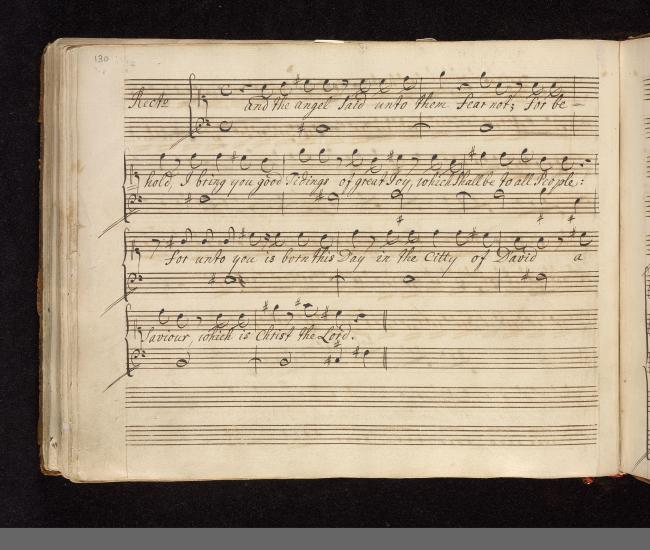 130
Recto and the angel said unto them fear not; for be-
hold, I bring you good Tidings of great Joy, which shall be to all People:
for unto you is born this Day in the Citty of David a
Saviour, which is Christ the Lord.